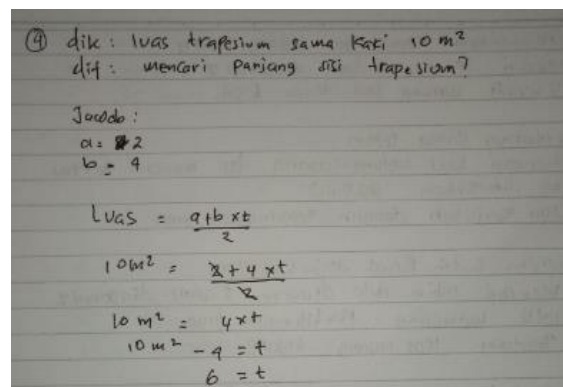 ④ dik : luas trapesium sama kaki 10 m²
dit : mencari panjang sisi trapesium?
Jawab :
a = 2
b = 4
Luas = a+b x t / 2
10m² = 2 + 4 x t / 2
10 m² = 4 x t
10 m² - 4 = t
6 = t